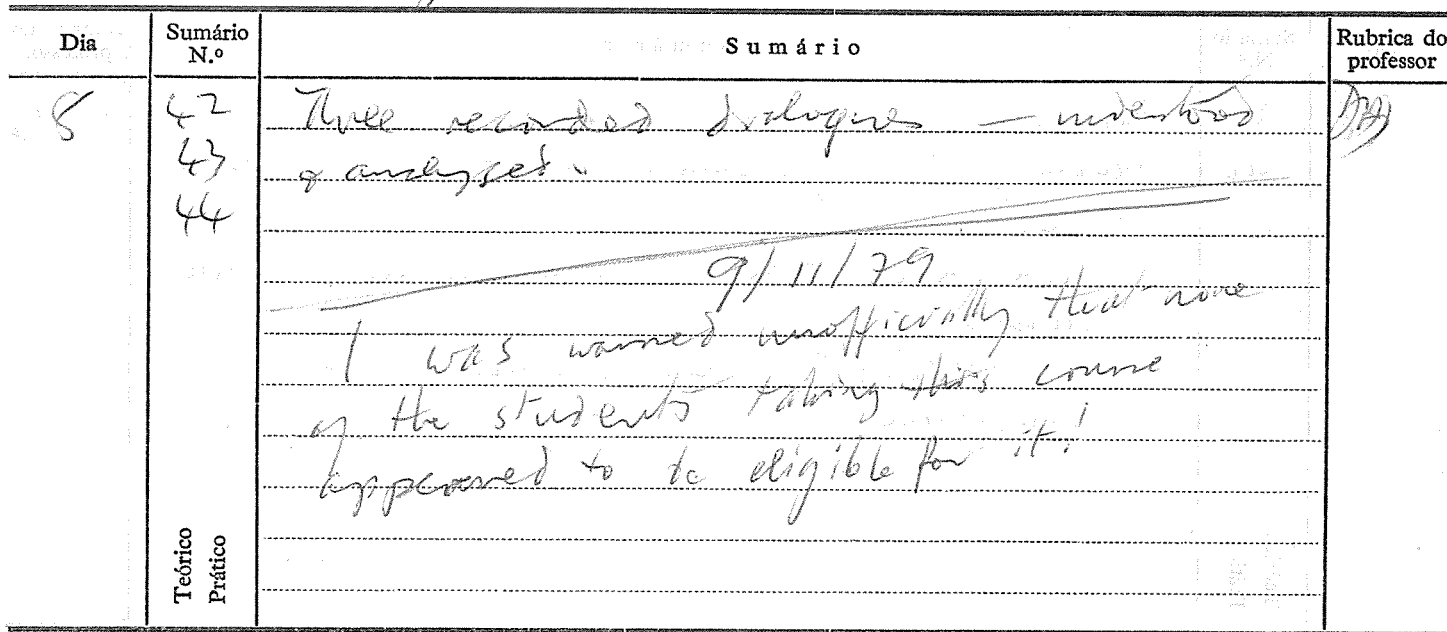 Dia Sumário N.º Sumário Rubrica do professor
8 42 Three recorded dialogues — understood
43 & analysed.
44
9/11/79
I was warned unofficially that none
of the students taking this course
appeared to be eligible for it!
Teórico
Prático